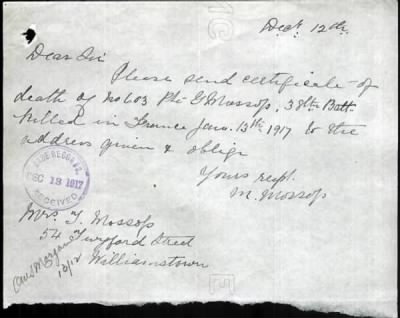 Dec. 12th
Dear Sir
Please send certificate of
death of No 603 Pte G Mossop, 38th Batt.
killed in France Jan. 13th 1917 to the
address given & oblige
Yours respt.
M. Mossop
DEC 13 1917
RECEIVED
Mrs. T. Mossop
54 Twyford Street
Williamstown
13/12